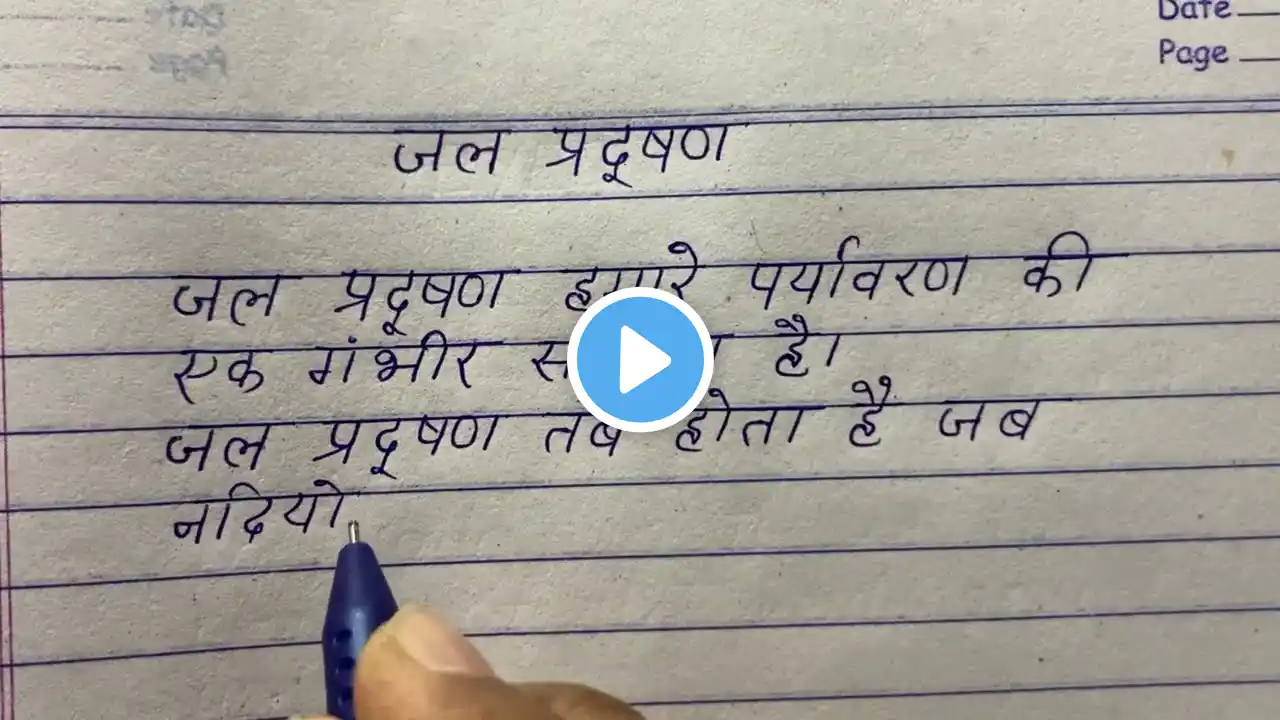 Date
Page
जल प्रदूषण
जल प्रदूषण हमारे पर्यावरण की
एक गंभीर है।
जल प्रदूषण तब होता है जब
नदियो